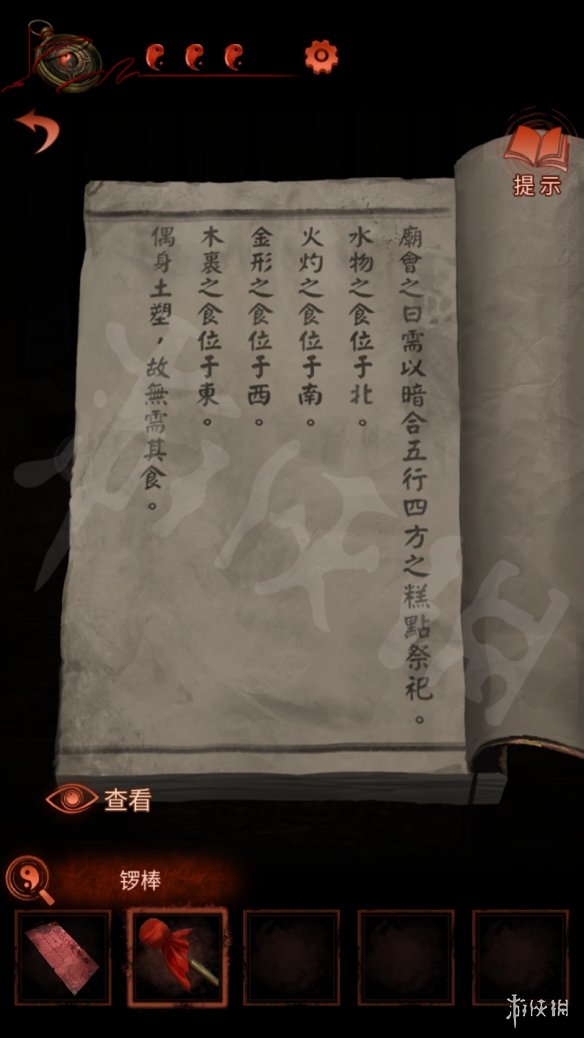 提示
廟會之日需以暗合五行四方之糕點祭祀。
水物之食位于北。
火灼之食位于南。
金形之食位于西。
木裹之食位于東。
偶身土塑，故無需其食。
查看
锣棒
游侠网
游侠网